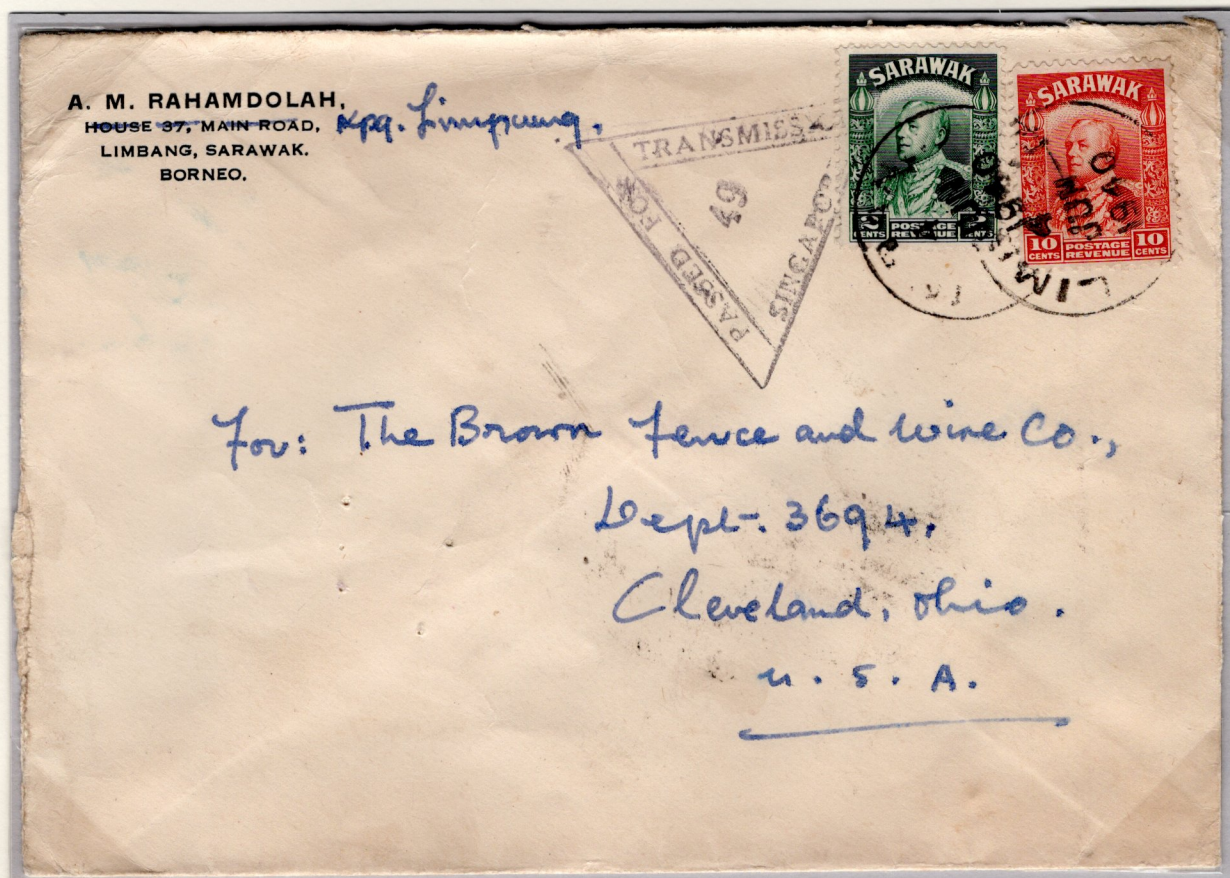 A. M. RAHAMDOLAH,
HOUSE 37, MAIN ROAD, Kpg.
LIMBANG, SARAWAK.
BORNEO.
PASSED FOR
TRANSMISS
SINGAPO
49
SARAWAK
2 CENTS POSTAGE REVENUE 2 CENTS
SARAWAK
10 CENTS POSTAGE REVENUE 10 CENTS
1940
LIM
For: The Brown Fence and Wire Co.,
Dept. 3694.
Cleveland, Ohio.
U. S. A.